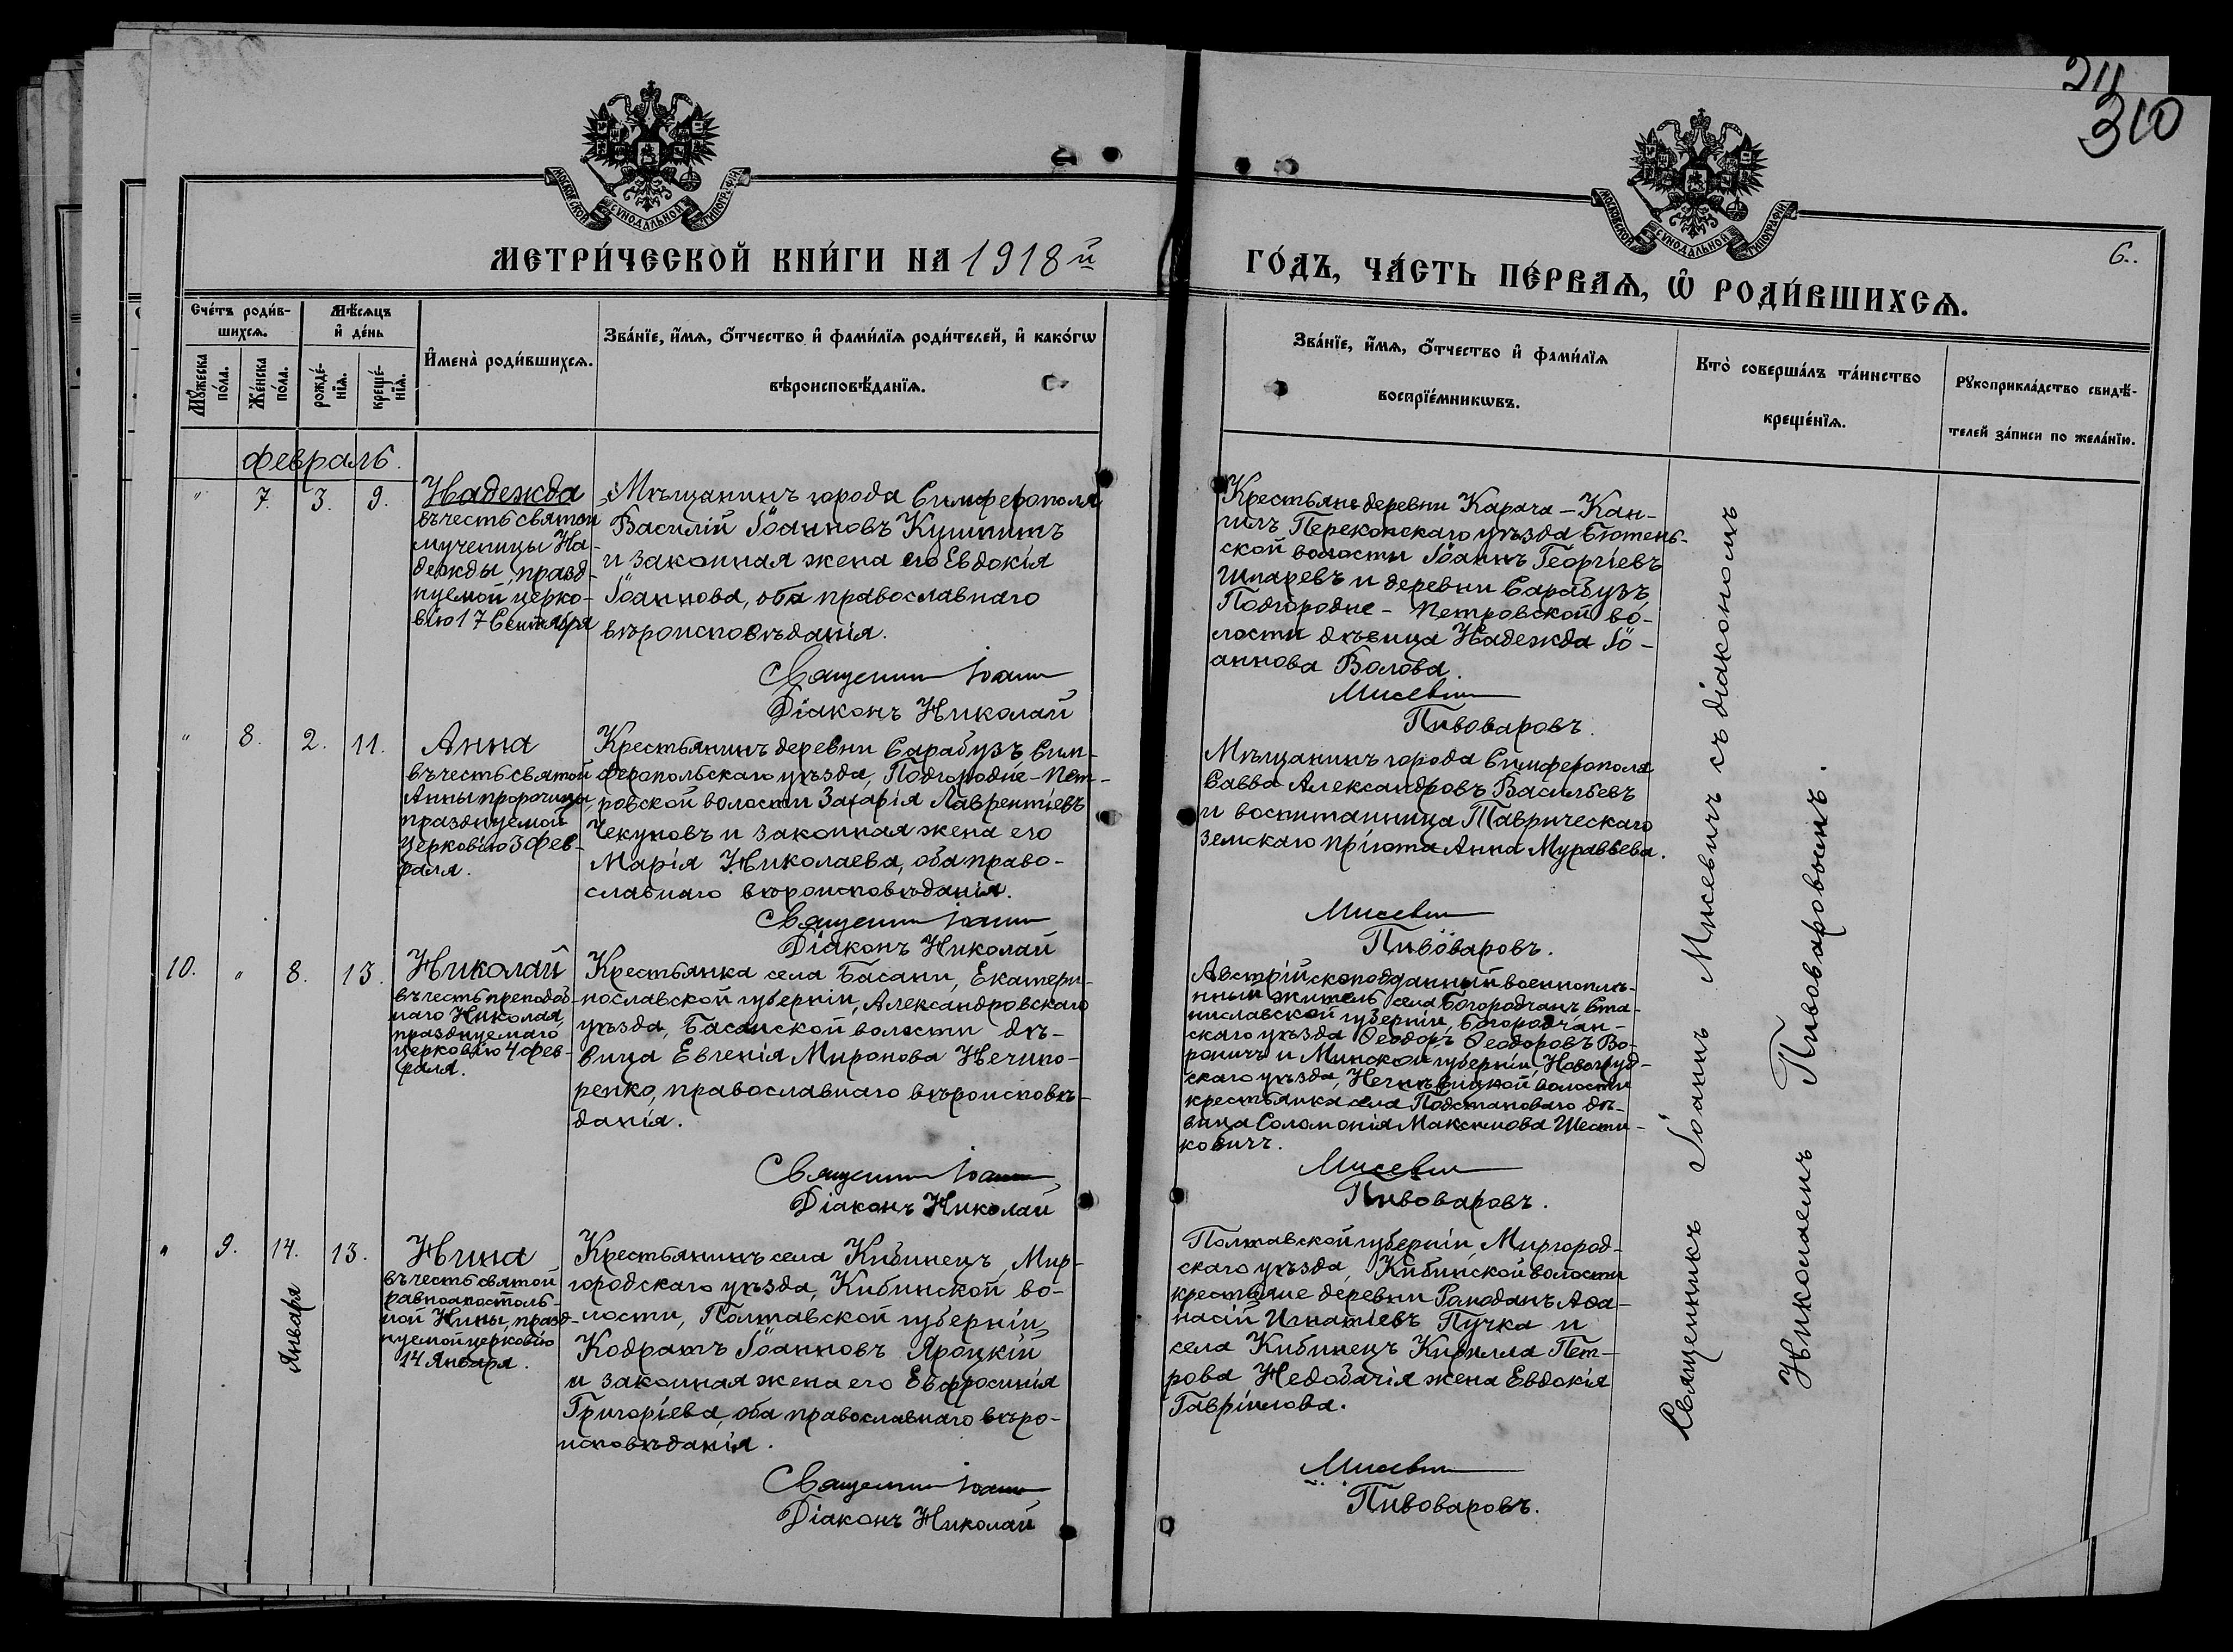 211
310
МОСКОВСКОЙ СѴНОДАЛЬНОЙ ТИПОГРАФІИ
МЕТРИ́ЧЕСКОЙ КНИ́ГИ НА 1918 й
МОСКОВСКОЙ СѴНОДАЛЬНОЙ ТИПОГРАФІИ
6.
ГО́ДЪ, ЧА́СТЬ ПЕ́РВАѦ, Ѿ РОДИ́ВШИХСѦ.
Сче́тъ роди́в-
шихсѧ.
Мѣ́сѧцъ
и҆ де́нь
Мꙋ́жеска
по́ла.
Же́нска
по́ла.
рожде́-
нїѧ.
креще́-
нїѧ.
И҆мена̀ роди́вшихсѧ.
Зва́нїе, и҆́мѧ, ѻ҆́тчество и҆ фами́лїѧ роди́телей, и҆ како́гѡ
вѣроисповѣ́данїѧ.
Зва́нїе, и҆́мѧ, ѻ҆́тчество и҆ фами́лїѧ
воспрїе́мникѡвъ.
Кто̀ соверша́лъ та́инство
креще́нїѧ.
Рꙋкоприкла́дство свидѣ́-
телей за́писи по жела́нїю.
Февраль.
" 7. 3. 9.
Надежда
въ честь святой
мученицы На-
дежды, празд-
нуемой церко-
вію 17 Сентября
Мѣщанинъ города Симферополя
Василій Іоанновъ Кушнитъ
и законная жена его Евдокія
Іоаннова, оба православнаго
вѣроисповѣданія.
Священникъ Іоаннъ
Діаконъ Николай
Крестьяне деревни Карача-Кан-
гилъ Перекопскаго уѣзда Бютень-
ской волости Іоаннъ Георгіевъ
Шмаревъ и деревни Сарабузъ
Подгородне-Петровской во-
лости дѣвица Надежда Іо-
аннова Волова.
Мисевичъ
Пивоваровъ.
" 8. 2. 11.
Анна
въ честь святой
Анны пророчицы,
празднуемой
церковію 3 Фев-
раля.
Крестьянинъ деревни Сарабузъ Сим-
феропольскаго уѣзда, Подгородне-Пет-
ровской волости Захарія Лаврентіевъ
Чекуновъ и законная жена его
Марія Николаева, оба право-
славнаго вѣроисповѣданія.
Священникъ Іоаннъ
Діаконъ Николай
Мѣщанинъ города Симферополя
Савва Александровъ Васильевъ
и воспитанница Таврическаго
земскаго пріюта Анна Муравьева.
Мисевичъ
Пивоваровъ.
10. " 8. 13.
Николай
въ честь преподоб-
наго Николая,
празднуемаго
церковію 4 Фев-
раля.
Крестьянка села Басани, Екатери-
нославской губерніи, Александровскаго
уѣзда, Басанской волости дѣ-
вица Евгенія Миронова Нечипо-
ренко, православнаго вѣроисповѣ-
данія.
Священникъ Іоаннъ
Діаконъ Николай
Австрійскоподданный военноплѣ-
нный житель села Богородчанъ Ста-
ниславской губерніи, Богородчан-
скаго уѣзда Ѳеодоръ Ѳеодоровъ Во-
роничъ и Минской губерніи, Новогруд-
скаго уѣзда, волости
крестьянка села Подстановаго дѣ-
вица Соломонія Максимова Шести-
ковичъ.
Мисевичъ
Пивоваровъ.
" 9. 14. 13.
Января
Нина
въ честь святой
равноапостоль-
ной Нины, празд-
нуемой церковію
14 Января.
Крестьянинъ села Кибинецъ, Мир-
городскаго уѣзда, Кибинской во-
лости, Полтавской губерніи
Кодратъ Іоанновъ Яроцкій
и законная жена его Евфросинія
Григоріева, оба православнаго вѣро-
исповѣданія.
Священникъ Іоаннъ
Діаконъ Николай
Полтавской губерніи, Миргород-
скаго уѣзда, Кибинской волости
крестьяне деревни Ромоданъ Аѳа-
насій Игнатіевъ Пучка и
села Кибинецъ Кирилла Пет-
рова Недобачія жена Евдокія
Гавріилова.
Мисевичъ
Пивоваровъ.
Священникъ Іоаннъ Мисевичъ съ діакономъ
Николаемъ Пивоваровымъ.